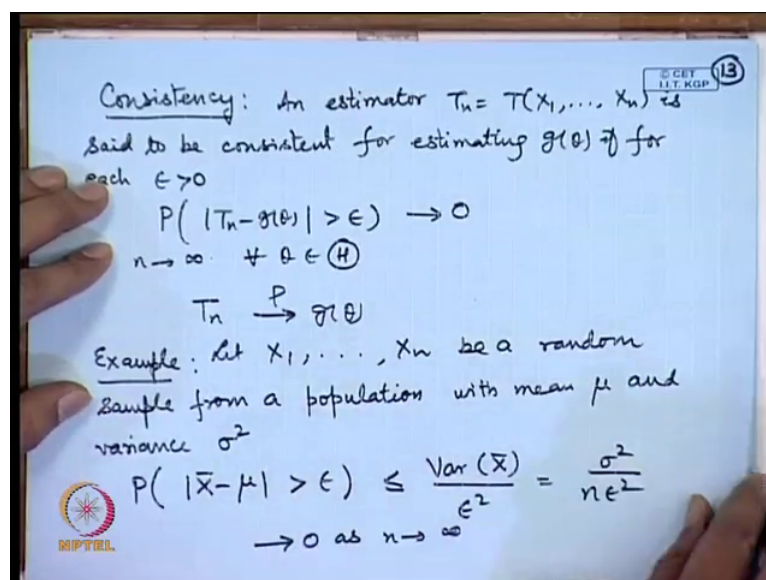 © CET
I.I.T. KGP
13
Consistency: An estimator Tn = T(X1, ..., Xn) is
said to be consistent for estimating g(θ) if for
each ϵ > 0
P( |Tn - g(θ)| > ϵ) → 0
n → ∞ ∀ θ ∈ Ⓗ
Tn →P g(θ)
Example: Let X1, ..., Xn be a random
sample from a population with mean μ and
variance σ²
P( |X̄ - μ| > ϵ) ≤ Var (X̄) / ϵ² = σ² / nϵ²
→ 0 as n → ∞
NPTEL